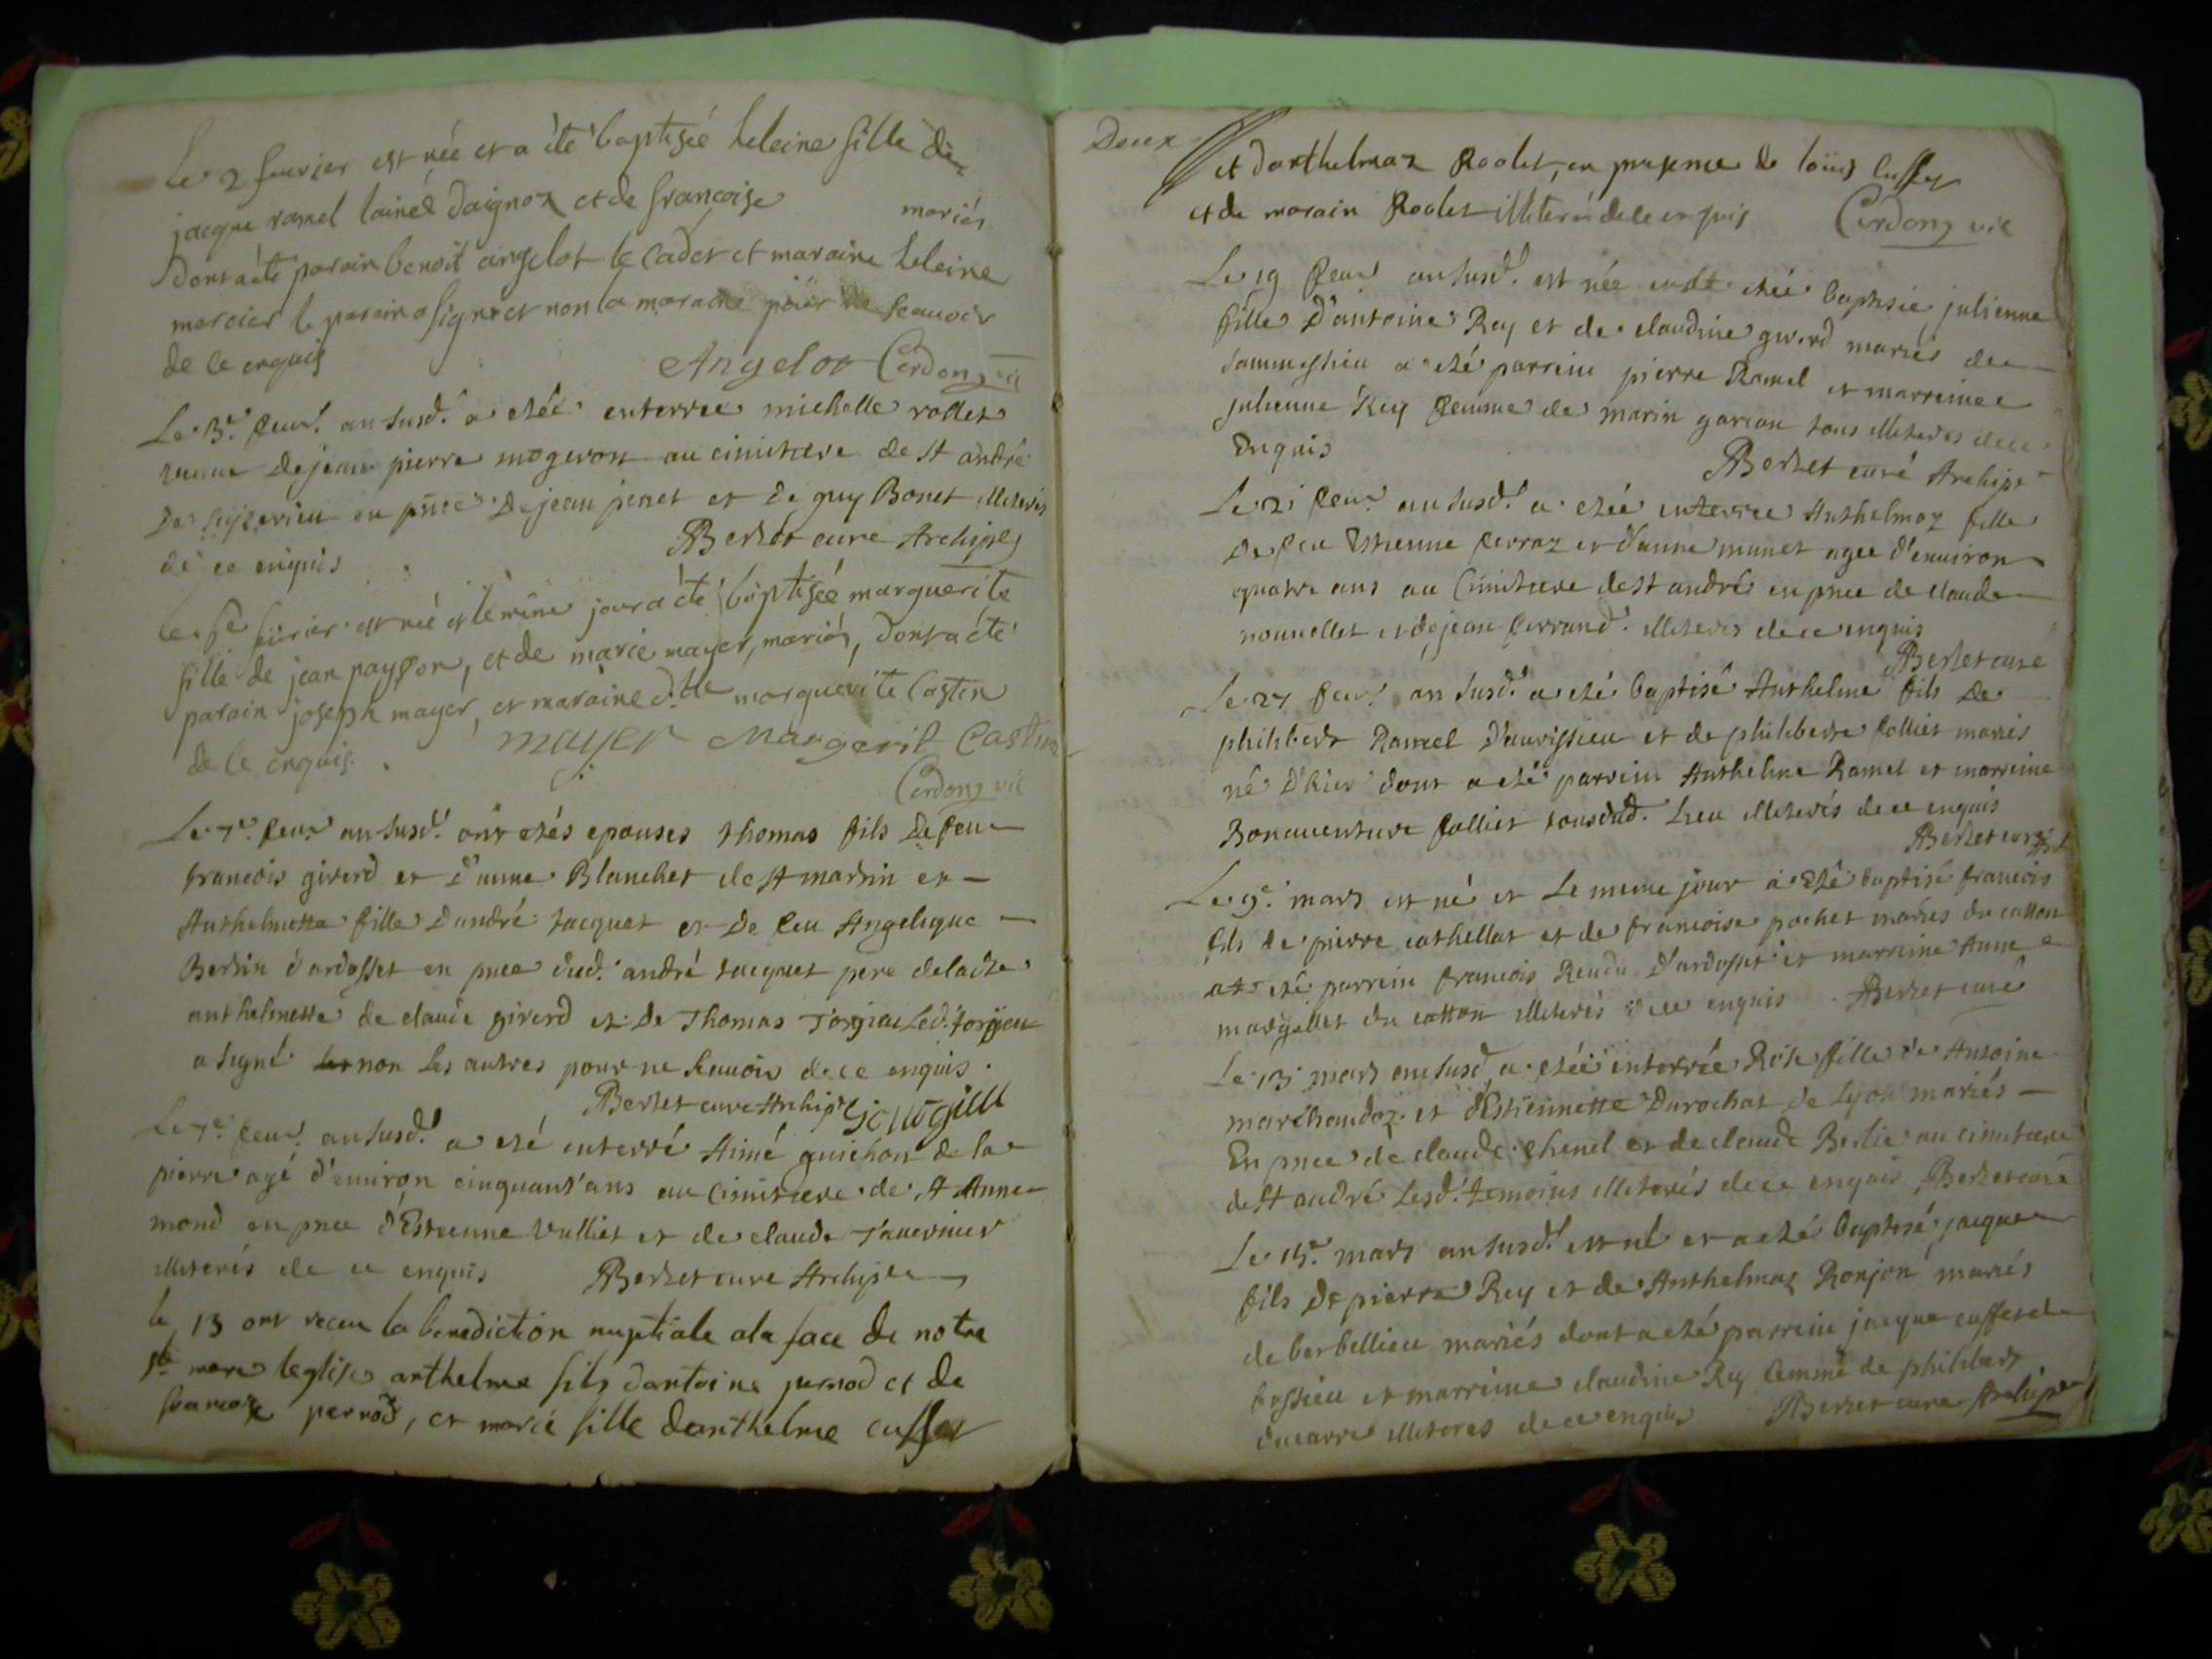 Le 2 feurier est née et a été baptisée heleine fille de
jacque ramel lainé daignoz et de francoise mariés
dont a été parain benoit angelot le cadet et maraine heleine
mercier le parain a signé et non la maraine pour ne scauoir
de ce enquis
Angelot Cerdon vic
Le 3e feur. an susd.t a etéé enterree michelle rollet
veuue de jean pierre mogeron au cimitiere de st andré
de en pnce de jean jenet et de guy Bonet illiterés
de ce enquis Berlet cure Archip
le feurier est née et le même jour a été baptisée marguerite
fille de jean paysson, et de marie mayer, mariés, dont a été
parain joseph mayer, et maraine d.lle marguerite Castin
de ce enquis. mayer Margerit Castin
Cerdon vic
Le 7e feur an susd.t ont etés epousés thomas fils de feu
francois girerd et d'anne Blanchet de st martin et
Anthelmette fille d'andré jacquet et de feu Angelique
Bertin d'ardosset en pnce dud. andré jacquet pere de
anthelmette de claude girerd et de Thomas Led.
a signé non les autres pour ne scauoir de ce enquis.
Berlet cure Archip
Le 7e feur an susd.t a eté enterré Aimé guichon de la
pierre agé d'enuiron cinquant'ans au cimitiere de st Anne
mond en pnce d'Estienne vulliet et de claude Tauernier
illiterés de ce enquis Berlet cure Archip
le 13 ont receu la benediction nuptiale a la face de notre
ste mere leglise anthelme fils dantoine pernod et de
francoise perrod, et marie fille danthelme cusset
Deux
et danthelmaz Roolet, en presence de loüis cusset
et de marain Roolet illiterés de ce enquis Cerdon vic
Le 19 feur an susd.t est née et a etéé baptisée julienne
fille d'antoine Rey et de claudine girerd mariés de
a eté parrein pierre Ramel et marreine
julienne Rey femme de marin garcon tous illiterés de ce
enquis Berlet curé Archip
Le 21 feur an susd.t a etéé enterree Anthelmaz fille
de feu Estienne ferraz et d'anne munet agee d'enuiron
quatre ans au cimitiere de st andré en pnce de claude
nouuellet et de jean ferrand. illiterés de ce enquis
Berlet curé
Le 27 feur an susd.t a eté baptisé Anthelme fils de
philibert Ramel d'aurissieu et de philiberte follier mariés
né d'hier dont a eté parrein Anthelme Ramel et marreine
Bonauenture follier tous dud. lieu illiterés de ce enquis
Berlet
Le 9e mars est né et le meme jour a eté baptisé francois
fils de pierre cathellat et de francoise pochet mariés du catton
a eté parrein francois Rendu d'ardosset et marreine Anne
margellet du catton illiterés de ce enquis Berlet curé
Le 13 mars an susd. a etéé enterrée Rose fille de Antoine
marchandoz et d'Estiennette Durochat de Lyon mariés
En pnce de claude chenel et de claude Berlie au cimitiere
de st andré Lesd. temoins illiterés de ce enquis Berlet curé
Le 15e mars an susd.t est né et a eté baptisé jacque
fils de pierre Rey et de Anthelmaz Ronjon mariés
de berbellieu mariés dont a eté parrein jacque cusset de
bossieu et marreine claudine Rey femme de philibert
ducarre illiterés de ce enquis Berlet cure Archip